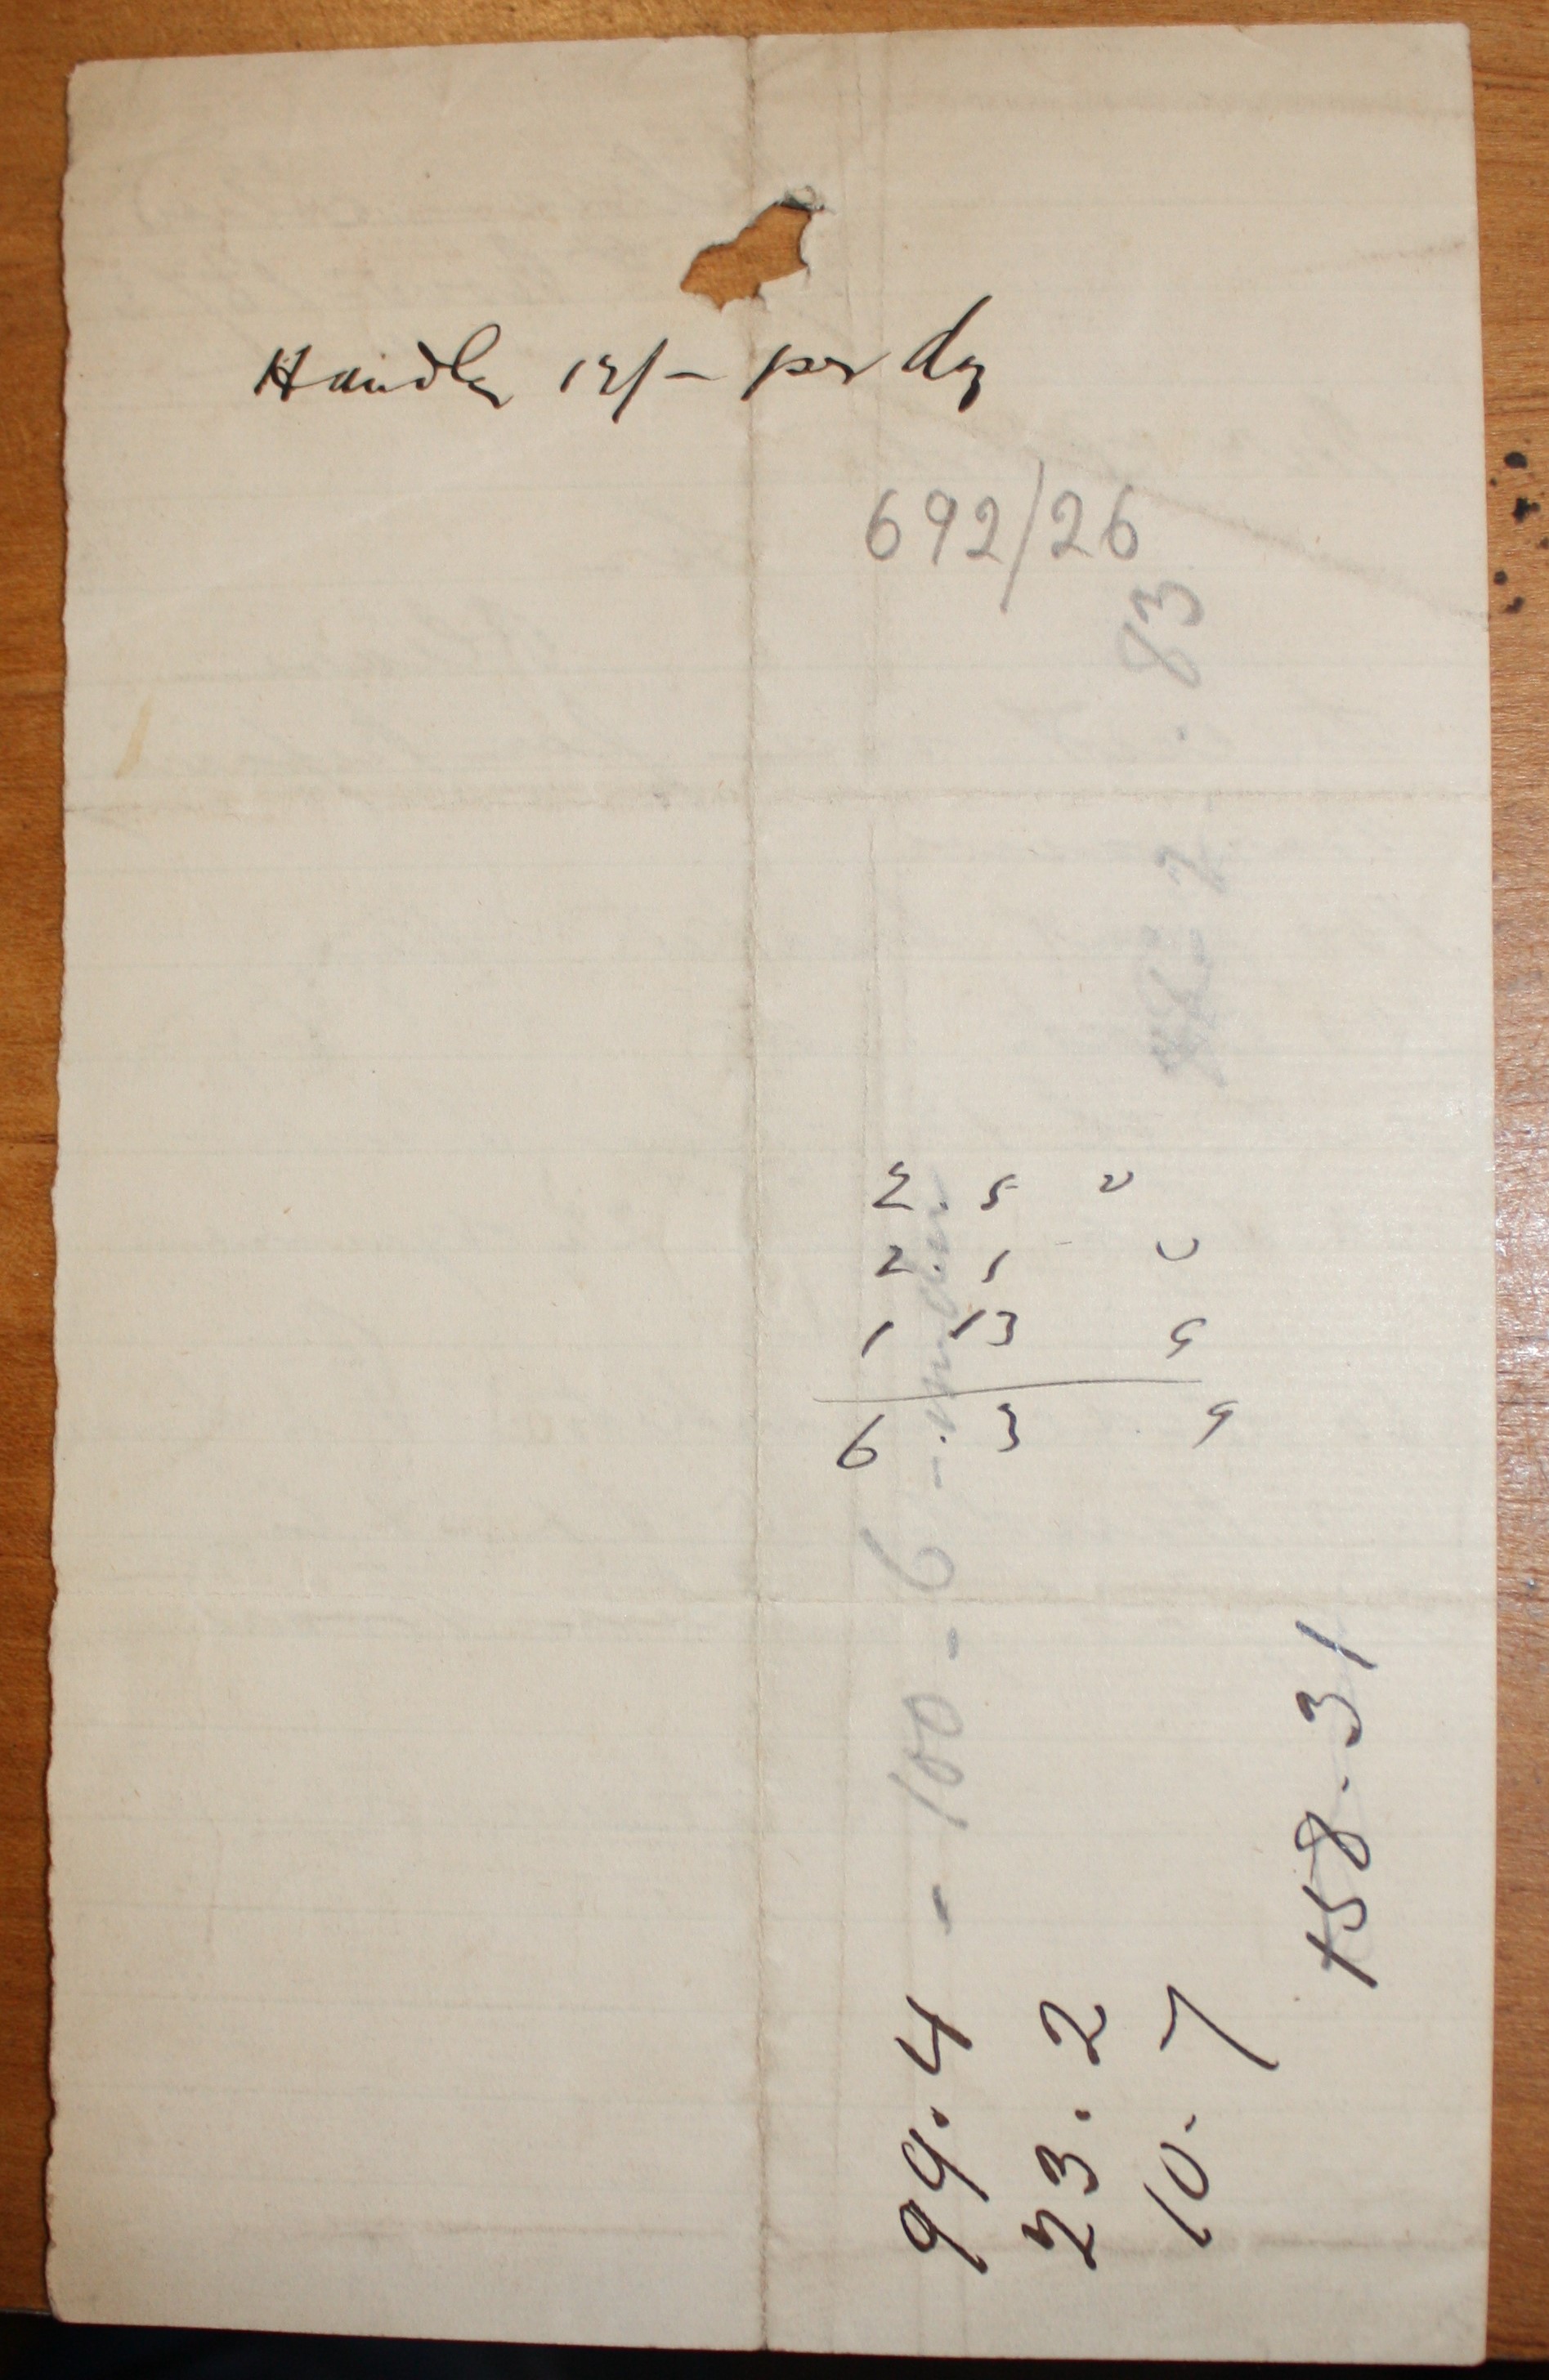 Handles 12/- per doz
692/26
.83
2. 5 0
2. 5 0
1 13 9
6. 3 9
99.4 - 100 - 6 -
23.2
10.7
158.31